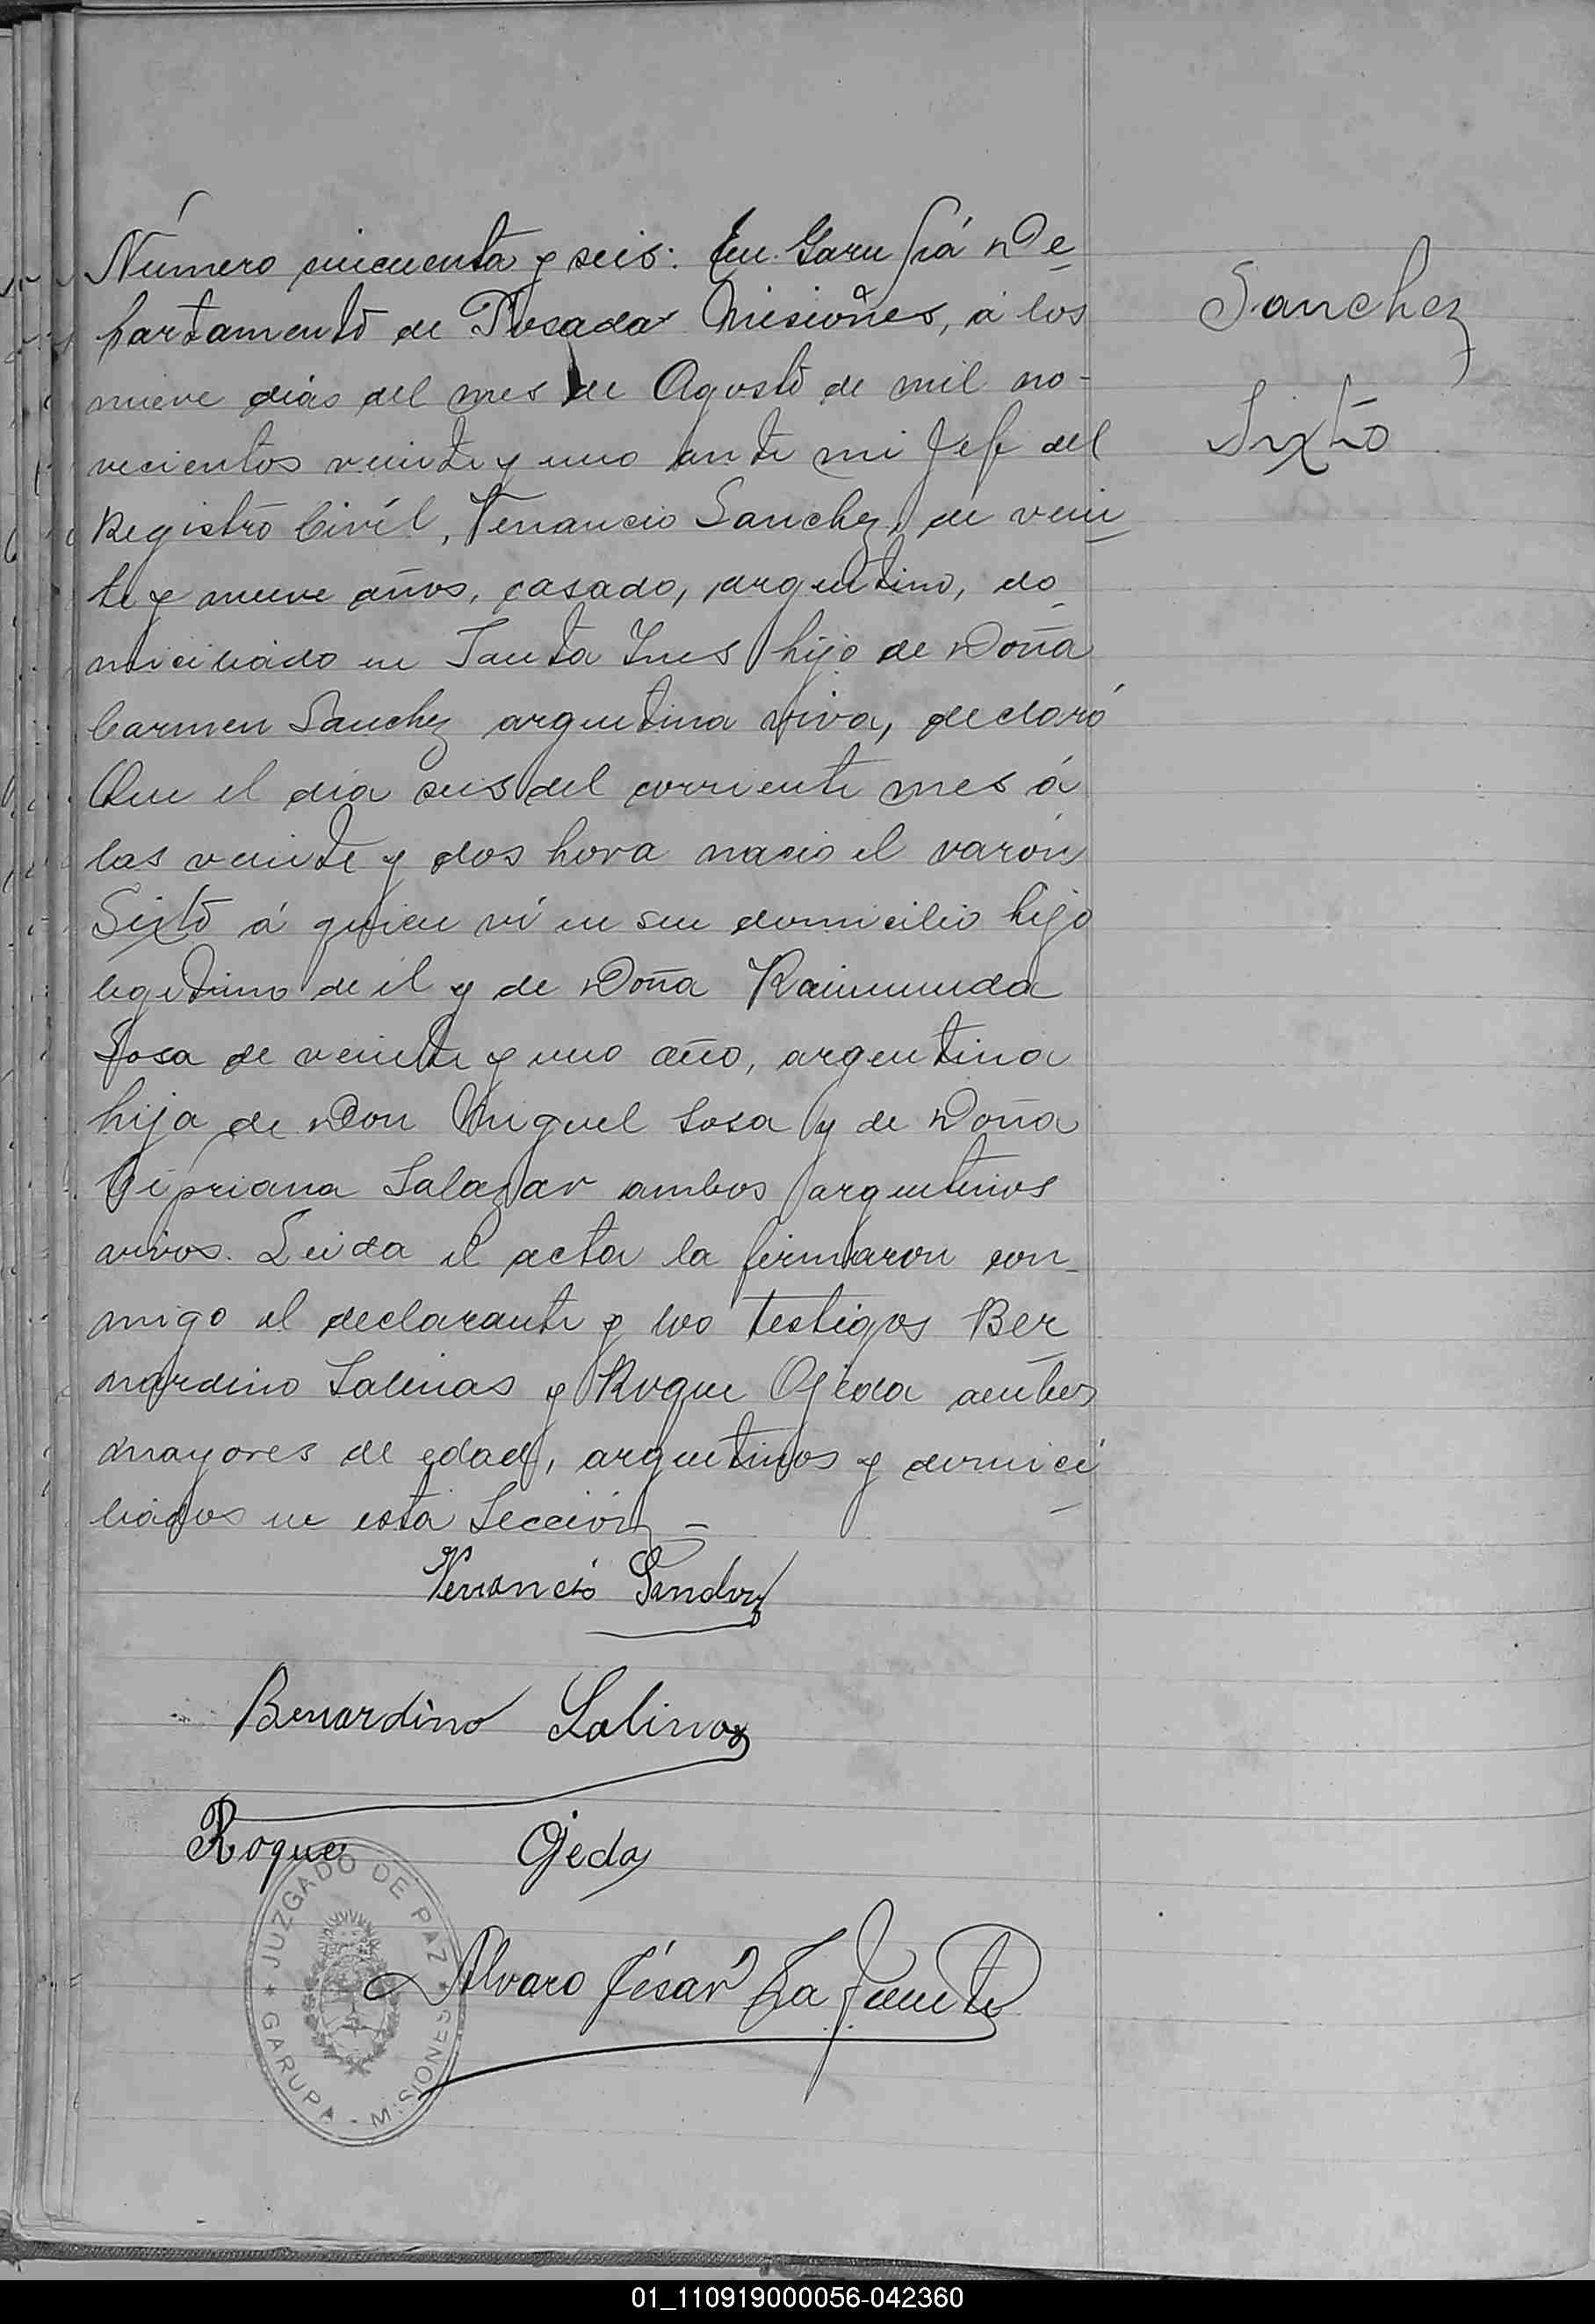 Número cincuenta y seis: En Garupá De
partamento de Posadas Misiones, á los
nueve dias del mes de Agosto de mil no-
vecientos veinte y uno ante mi Jefe del
Registro Civíl, Venancio Sanchez, de vein
te y nueve años, casado, argentino, do
miciliado en Santa Ines hijo de Doña
Carmen Sanchez argentina viva, declaró
Que el dia seis del corriente mes á
las veinte y dos hora nacio el varón
Sixto á quien ví en su domicilio hijo
legitimo de él y de Doña Raimunda
Sosa de veinte y uno año, argentina
hija de Don Miguel Sosa y de Doña
Cipriana Salazar ambos argentinos
vivos. Leida el acta la firmaron con-
migo el declarante y los testigos Ber
nardino Salinas y Roque Ojeda ambos
mayores de edad, argentinos y domici
liados en esta Sección -
Sanchez
Sixto
Venancio Sanchez
Bernardino Salinas
Roque Ojeda
Alvaro César La Fuente
JUZGADO DE PAZ
GARUPA - MISIONES
01_110919000056-042360